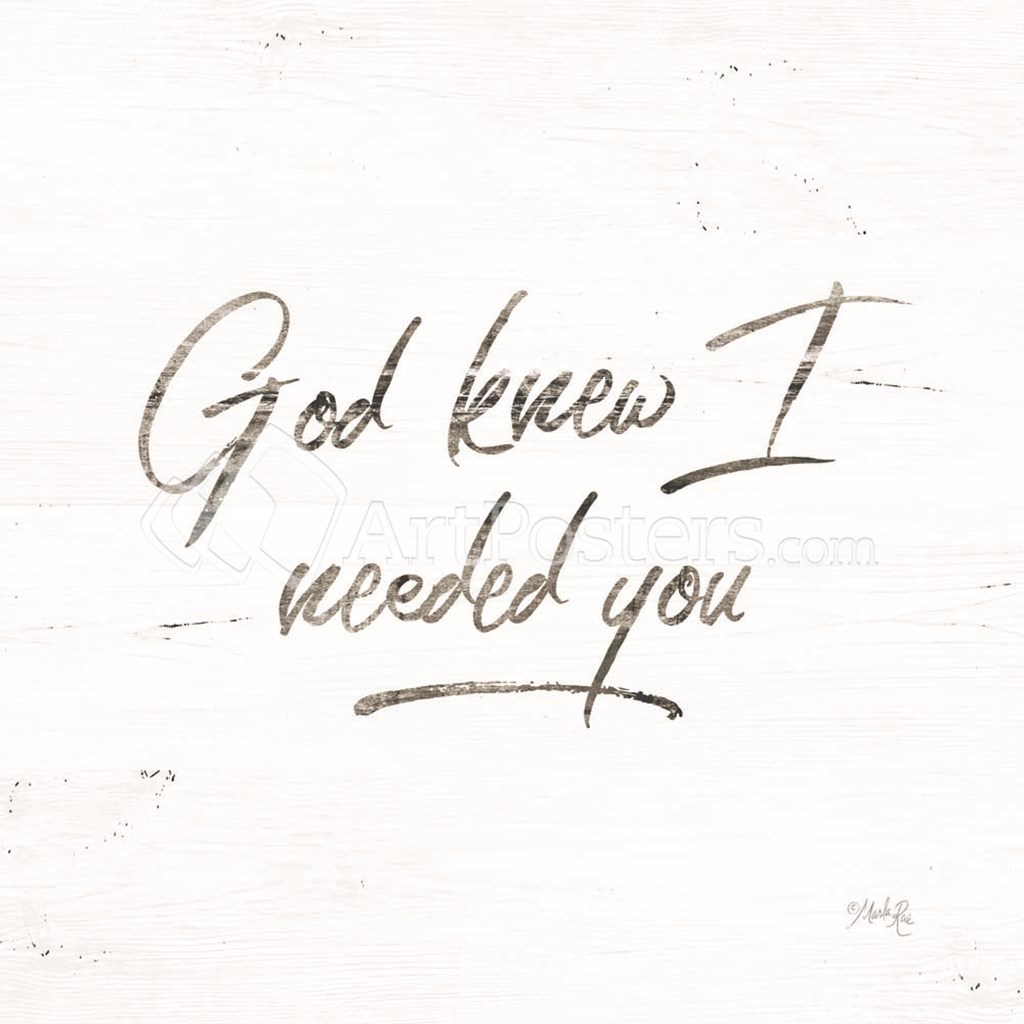 God knew I
ArtPosters.com
needed you
©Marla Rae